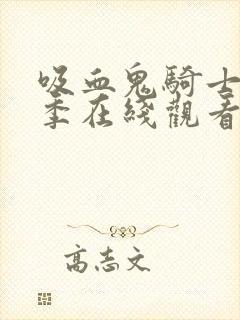 吸血鬼騎士
季在綫觀看
高志文